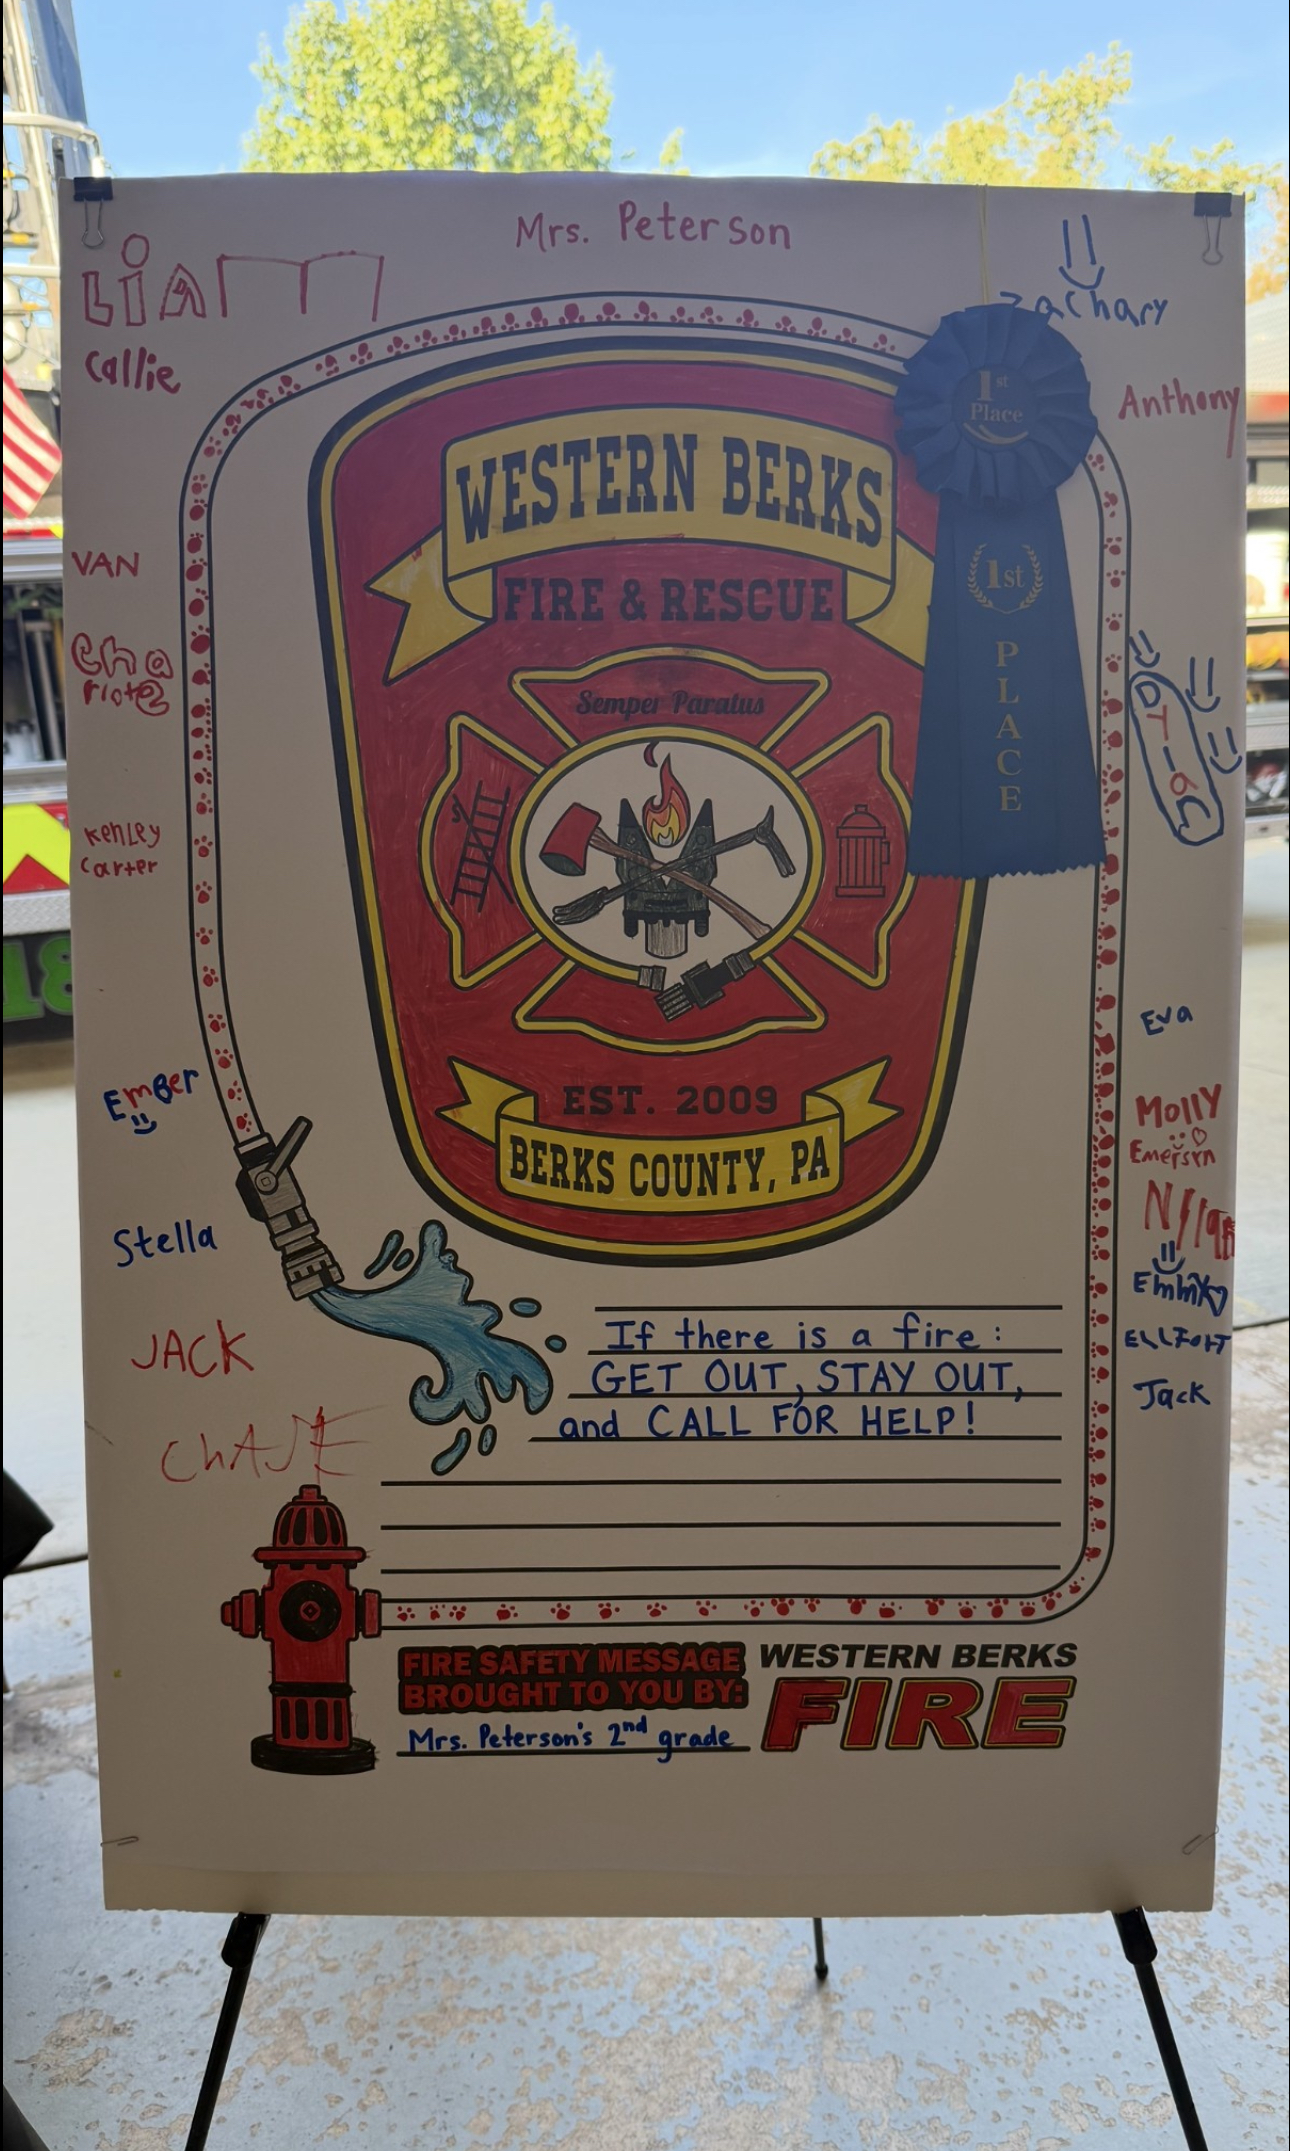 Mrs. Peterson
LiAm
Callie
Zachary
Anthony
1st
Place
WESTERN BERKS
FIRE & RESCUE
Semper Paratus
1st
PLACE
VAN
Cha
rlote
Kenley
Carter
EST. 2009
BERKS COUNTY, PA
18
Eva
EmBer
Molly
Emerson
Stella
JACK
Emmy
Jack
ChASE
If there is a fire:
GET OUT, STAY OUT,
and CALL FOR HELP!
FIRE SAFETY MESSAGE
BROUGHT TO YOU BY:
Mrs. Peterson's 2nd grade
WESTERN BERKS
FIRE